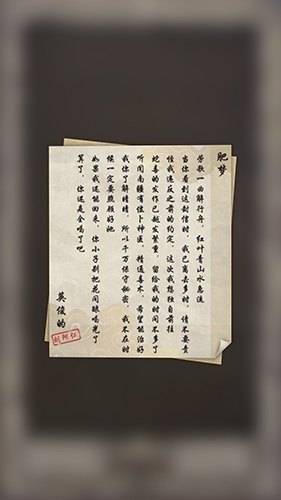 肥梦
劳歌一曲解行舟，红叶青山水急流
当你看到这封信时，我已离去多时，请不要责
怪我违反之前的约定，这次我想独自前往
蛇毒的发作已越发繁重，留给我的时间不多了
听闻南疆有位卜神医，精通毒术，希望能治好
我你了解晴晴，所以千万保守秘密，我不在时
候一定要照顾好她
如果我还能回来，你小子别把花间眠喝光了
算了，你还是全喝了吧
英俊的
刘阿仁